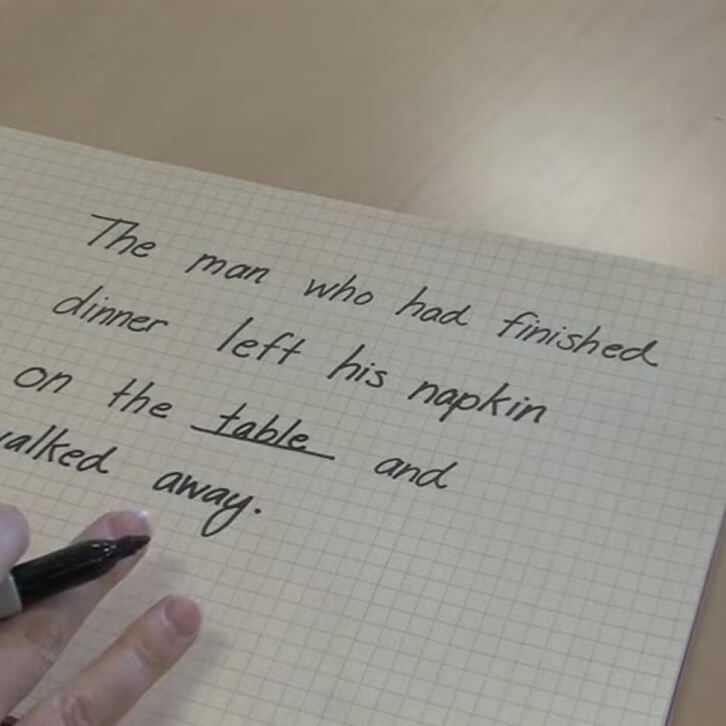 The man who had finished
dinner left his napkin
on the table and
walked away.